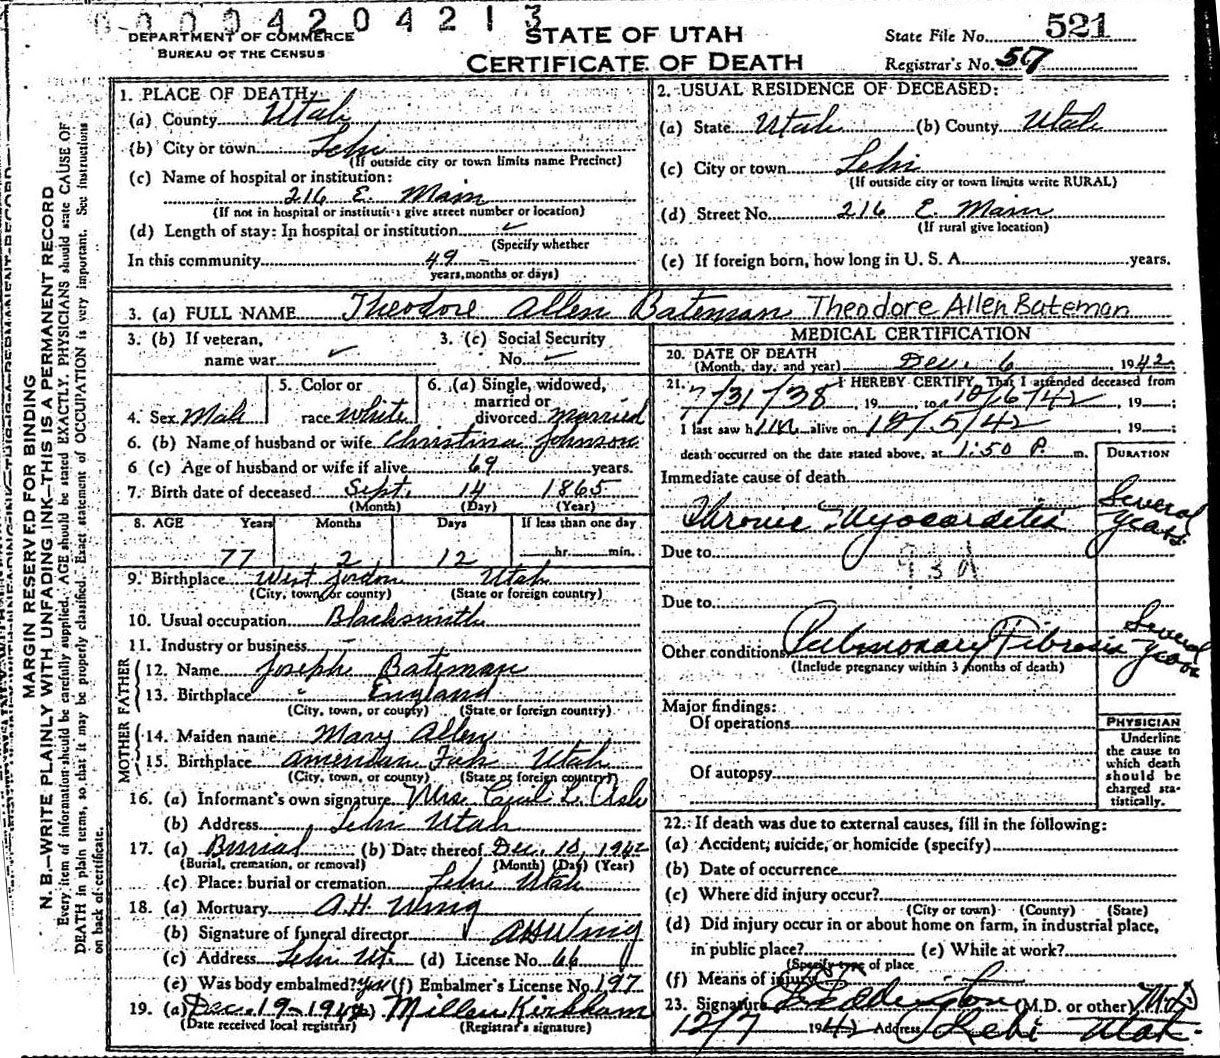 00004204213
DEPARTMENT OF COMMERCE
BUREAU OF THE CENSUS
STATE OF UTAH
CERTIFICATE OF DEATH
State File No. 521
Registrar's No. 57
MARGIN RESERVED FOR BINDING
N. B.—WRITE PLAINLY WITH UNFADING INK—THIS IS A PERMANENT RECORD
Every item of information should be carefully supplied. AGE should be stated EXACTLY. PHYSICIANS should state CAUSE OF
DEATH in plain terms, so that it may be properly classified. Exact statement of OCCUPATION is very important. See instructions
on back of certificate.
1. PLACE OF DEATH:
(a) County Utah
(b) City or town Lehi
(If outside city or town limits name Precinct)
(c) Name of hospital or institution:
216 E. Main
(If not in hospital or institution give street number or location)
(d) Length of stay: In hospital or institution ✓
(Specify whether
In this community 49 -
years, months or days)
2. USUAL RESIDENCE OF DECEASED:
(a) State Utah (b) County Utah
(c) City or town Lehi
(If outside city or town limits write RURAL)
(d) Street No. 216 E. Main
(If rural give location)
(e) If foreign born, how long in U. S. A. years.
3. (a) FULL NAME Theodore Allen Bateman Theodore Allen Bateman
3. (b) If veteran,
name war ✓
3. (c) Social Security
No. ✓
4. Sex Male
5. Color or
race white
6. (a) Single, widowed,
married or
divorced married
6. (b) Name of husband or wife Christina Johnson
6 (c) Age of husband or wife if alive 69 years.
7. Birth date of deceased Sept. 14 1865
(Month) (Day) (Year)
8. AGE Years Months Days If less than one day
77 2 12 hr. min.
9. Birthplace West Jordon Utah
(City, town or county) (State or foreign country)
10. Usual occupation Blacksmith
11. Industry or business
FATHER
12. Name Joseph Bateman
13. Birthplace England
(City, town, or county) (State or foreign country)
MOTHER
14. Maiden name Mary Allen
15. Birthplace American Fork Utah
(City, town, or county) (State or foreign country)
16. (a) Informant's own signature Mrs. Cecil L. Ash
(b) Address Lehi Utah
17. (a) Burial (b) Date thereof Dec. 10, 1942
(Burial, cremation, or removal) (Month) (Day) (Year)
(c) Place: burial or cremation Lehi Utah
18. (a) Mortuary A.H. Wing
(b) Signature of funeral director AH Wing
(c) Address Lehi Ut. (d) License No. 66
(e) Was body embalmed? Yes (f) Embalmer's License No. 197
19. (a) Dec. 19-1942 Millen Kirkham
(Date received local registrar) (Registrar's signature)
MEDICAL CERTIFICATION
20. DATE OF DEATH
(Month, day, and year) Dec. 6, 1942
21. I HEREBY CERTIFY, That I attended deceased from
7/31/38, 19 to 12/6/42, 19 ;
I last saw him alive on 12/5/42, 19 ;
death occurred on the date stated above, at 1:50 P. m.
DURATION
Immediate cause of death
Chronic Myocarditis Several years
Due to 93d
Due to
Other conditions Pulmonary Fibrosis Several years
(Include pregnancy within 3 months of death)
Major findings:
Of operations
Of autopsy
PHYSICIAN
Underline
the cause to
which death
should be
charged sta-
tistically.
22. If death was due to external causes, fill in the following:
(a) Accident, suicide, or homicide (specify)
(b) Date of occurrence
(c) Where did injury occur?
(City or town) (County) (State)
(d) Did injury occur in or about home on farm, in industrial place,
in public place? (e) While at work?
(Specify type of place
(f) Means of injury
23. Signature Eddington (M.D. or other) M.D.
12/7 1942 Address Lehi Utah